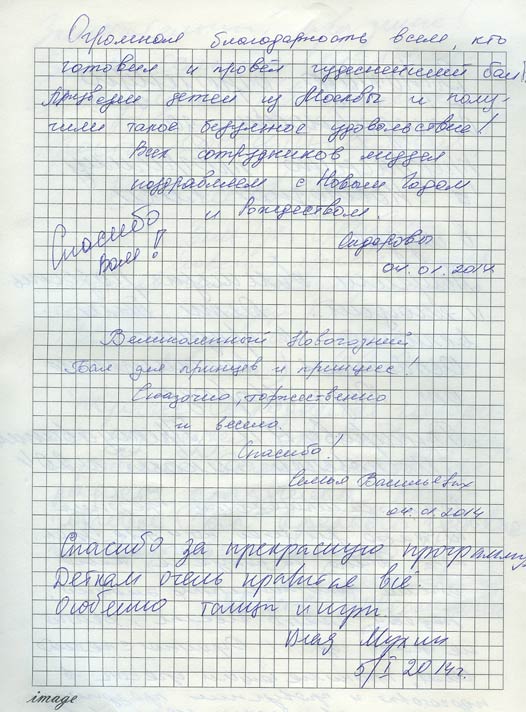 Огромная благодарность всем, кто
готовил и провёл чудеснейший бал!
Привезли детей из Москвы и полу-
чили такое безумное удовольствие!
Всех сотрудников музея
поздравляем с Новым Годом
и Рождеством.
Спасибо
Вам!
Сидоровы
04.01.2014
Великолепный Новогодний
Бал для принцев и принцесс!
Сказочно, торжественно
и весело.
Спасибо!
Семья Васильевых
04.01.2014
Спасибо за прекрасную программу
Деткам очень все.
Особенно танцы и игры.
Влад Мухин
5/I 2014г.
image